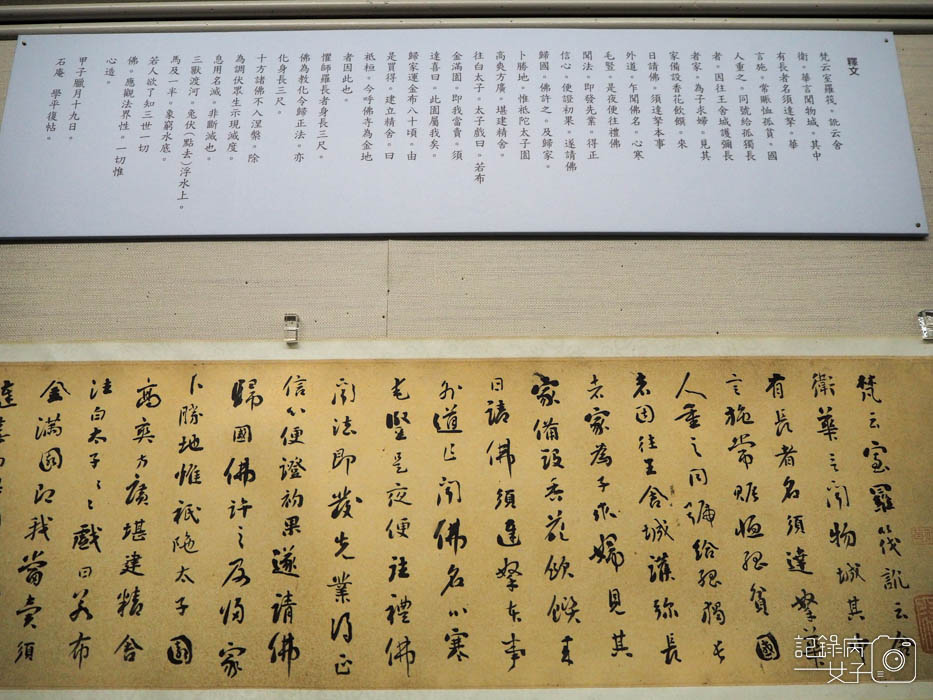 釋文
梵云室羅筏。訛云舍
衛。華言聞物城。其中
有長者名須達拏。華
言施。常賑恤孤貧。國
人重之。同號給孤獨長
者。因往王舍城護彌長
者家。為子求婦。見其
家備設香花飲饌。來
日請佛。須達拏本事
外道。乍聞佛名。心寒
毛豎。是夜便往禮佛
聞法。即發先業。得正
信心。便證初果。遂請佛
歸國。佛許之。及歸家。
卜勝地。惟祇陀太子園
高爽方廣。堪建精舍。
往白太子。太子戲曰。若布
金滿園。即我當賣。須
達喜曰。此園屬我矣。
歸家運金布八十頃。由
是買得。建立精舍。曰
祇桓。今呼佛寺為金地
者因此也。
懼師羅長者身長三尺。
佛為教化令歸正法。亦
化身長三尺。
十方諸佛不入涅槃。除
為調伏眾生示現減度。
息用名滅。非斷滅也。
三獸渡河。兔伏（點去）浮水上。
馬及一半。象窮水底。
若人欲了知三世一切
佛。應觀法界性。一切惟
心造。
甲子臘月十九日。
石庵 學平復帖。
梵云室羅筏訛云舍
衛華言聞物城其中
有長者名須達拏華
言施常賑恤孤貧國
人重之同號給孤獨長
者因往王舍城護彌長
者家為子求婦見其
家備設香花飲饌來
日請佛須達拏本事
外道乍聞佛名心寒
毛豎是夜便往禮佛
聞法即發先業得正
信心便證初果遂請佛
歸國佛許之及歸家
卜勝地惟祇陀太子園
高爽方廣堪建精舍
往白太子太子戲曰若布
金滿園即我當賣須
達喜曰
記錄內
女子